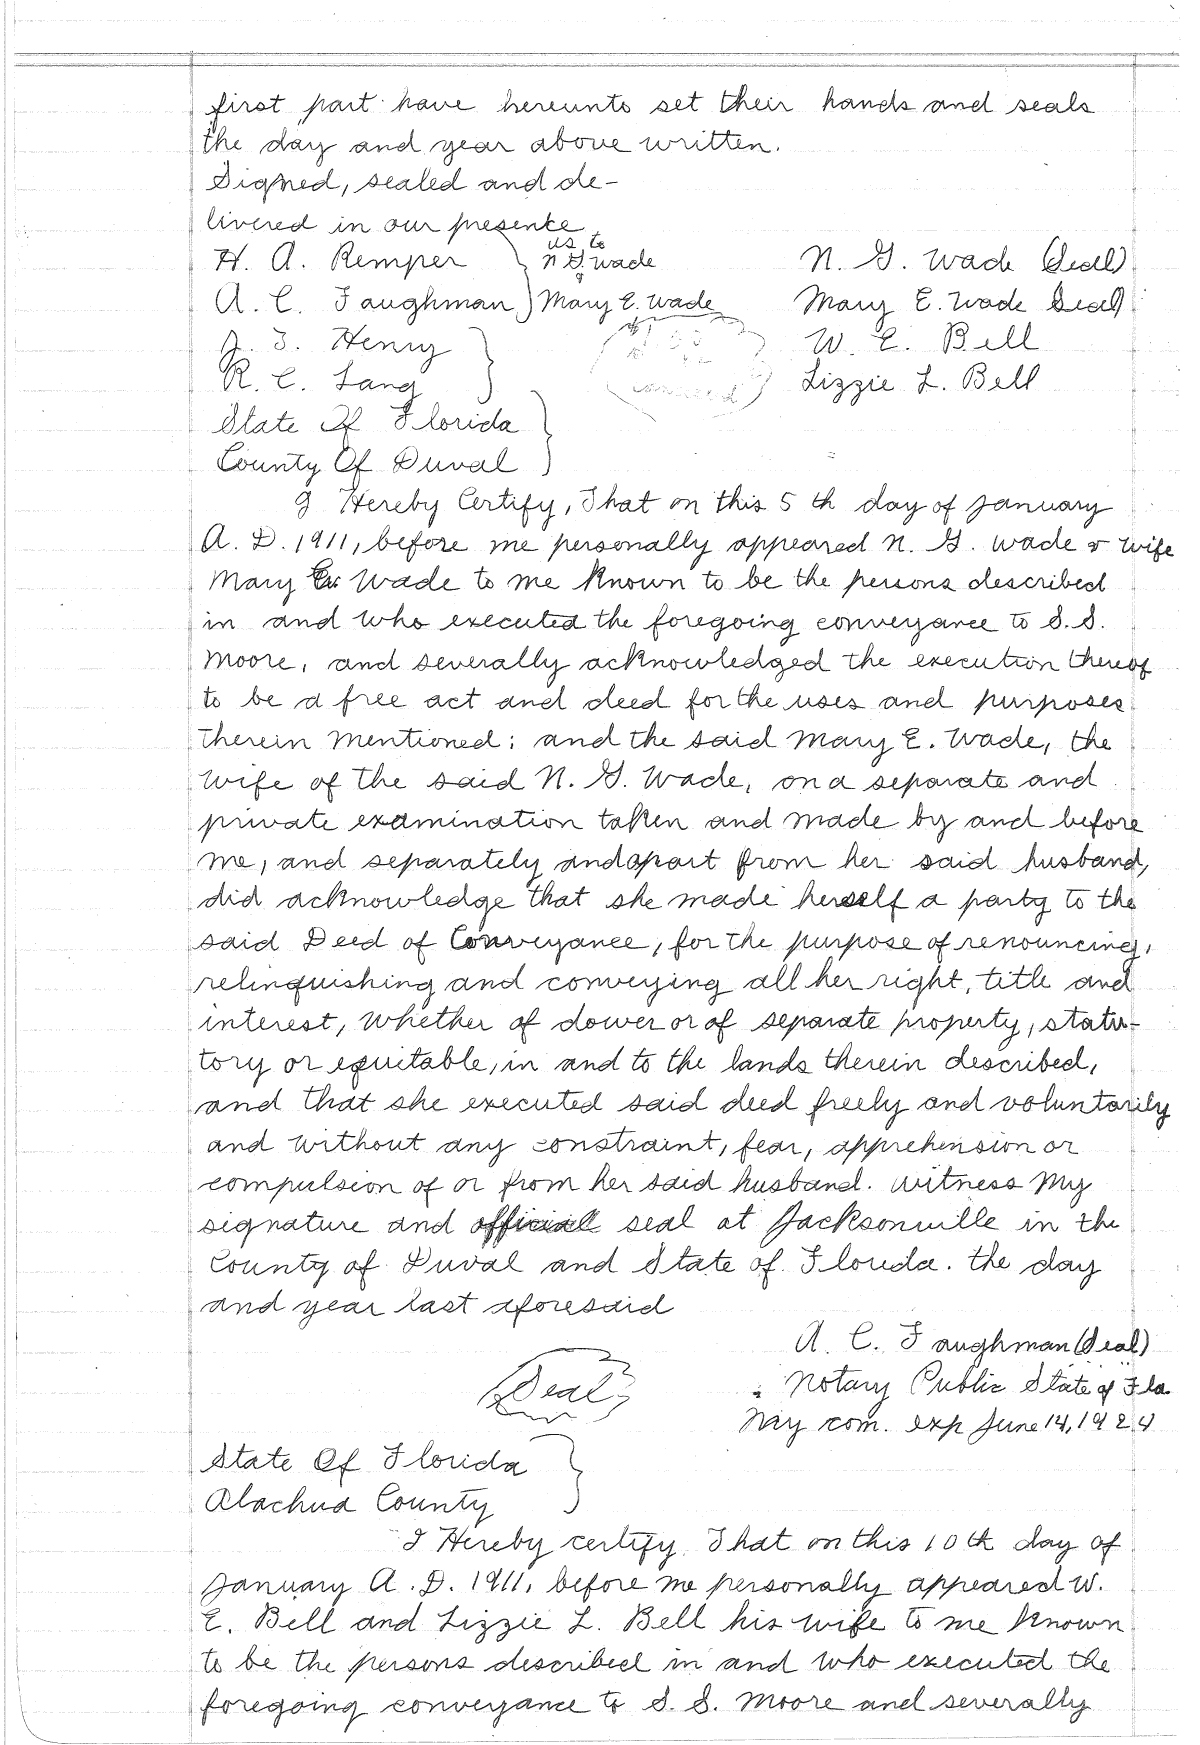 first part have hereunto set their hands and seals
the day and year above written.
Signed, sealed and de-
livered in our presence
H. A. Remper } as to N G Wade N. G. Wade (Seal)
A. C. Faughman } & Mary E. Wade Mary E. Wade Seal)
J. T. Henry } W. E. Bell
R. C. Lang } Lizzie L. Bell
State Of Florida }
County Of Duval }
I Hereby Certify, That on this 5 th day of January
A. D. 1911, before me personally appeared N. G. Wade & wife
Mary E. Wade to me Known to be the persons described
in and who executed the foregoing conveyance to S. S.
Moore, and severally acknowledged the execution thereof
to be a free act and deed for the uses and purposes
therein mentioned; and the said Mary E. Wade, the
wife of the said N. G. Wade, on a separate and
private examination taken and made by and before
me, and separately and apart from her said husband,
did acknowledge that she made herself a party to the
said Deed of Conveyance, for the purpose of renouncing,
relinquishing and conveying all her right, title and
interest, whether of dower or of separate property, statu-
tory or equitable, in and to the lands therein described,
and that she executed said deed freely and voluntarily
and without any constraint, fear, apprehension or
compulsion of or from her said husband. Witness My
signature and official seal at Jacksonville in the
County of Duval and State of Florida. the day
and year last aforesaid
A. C. Faughman (Seal)
Seal Notary Public State of Fla.
May com. exp June 14, 1924
State Of Florida }
Alachua County }
I Hereby certify, That on this 10th day of
January A. D. 1911, before me personally appeared W.
E. Bell and Lizzie L. Bell his wife to me Known
to be the persons described in and who executed the
foregoing conveyance to S. S. Moore and severally